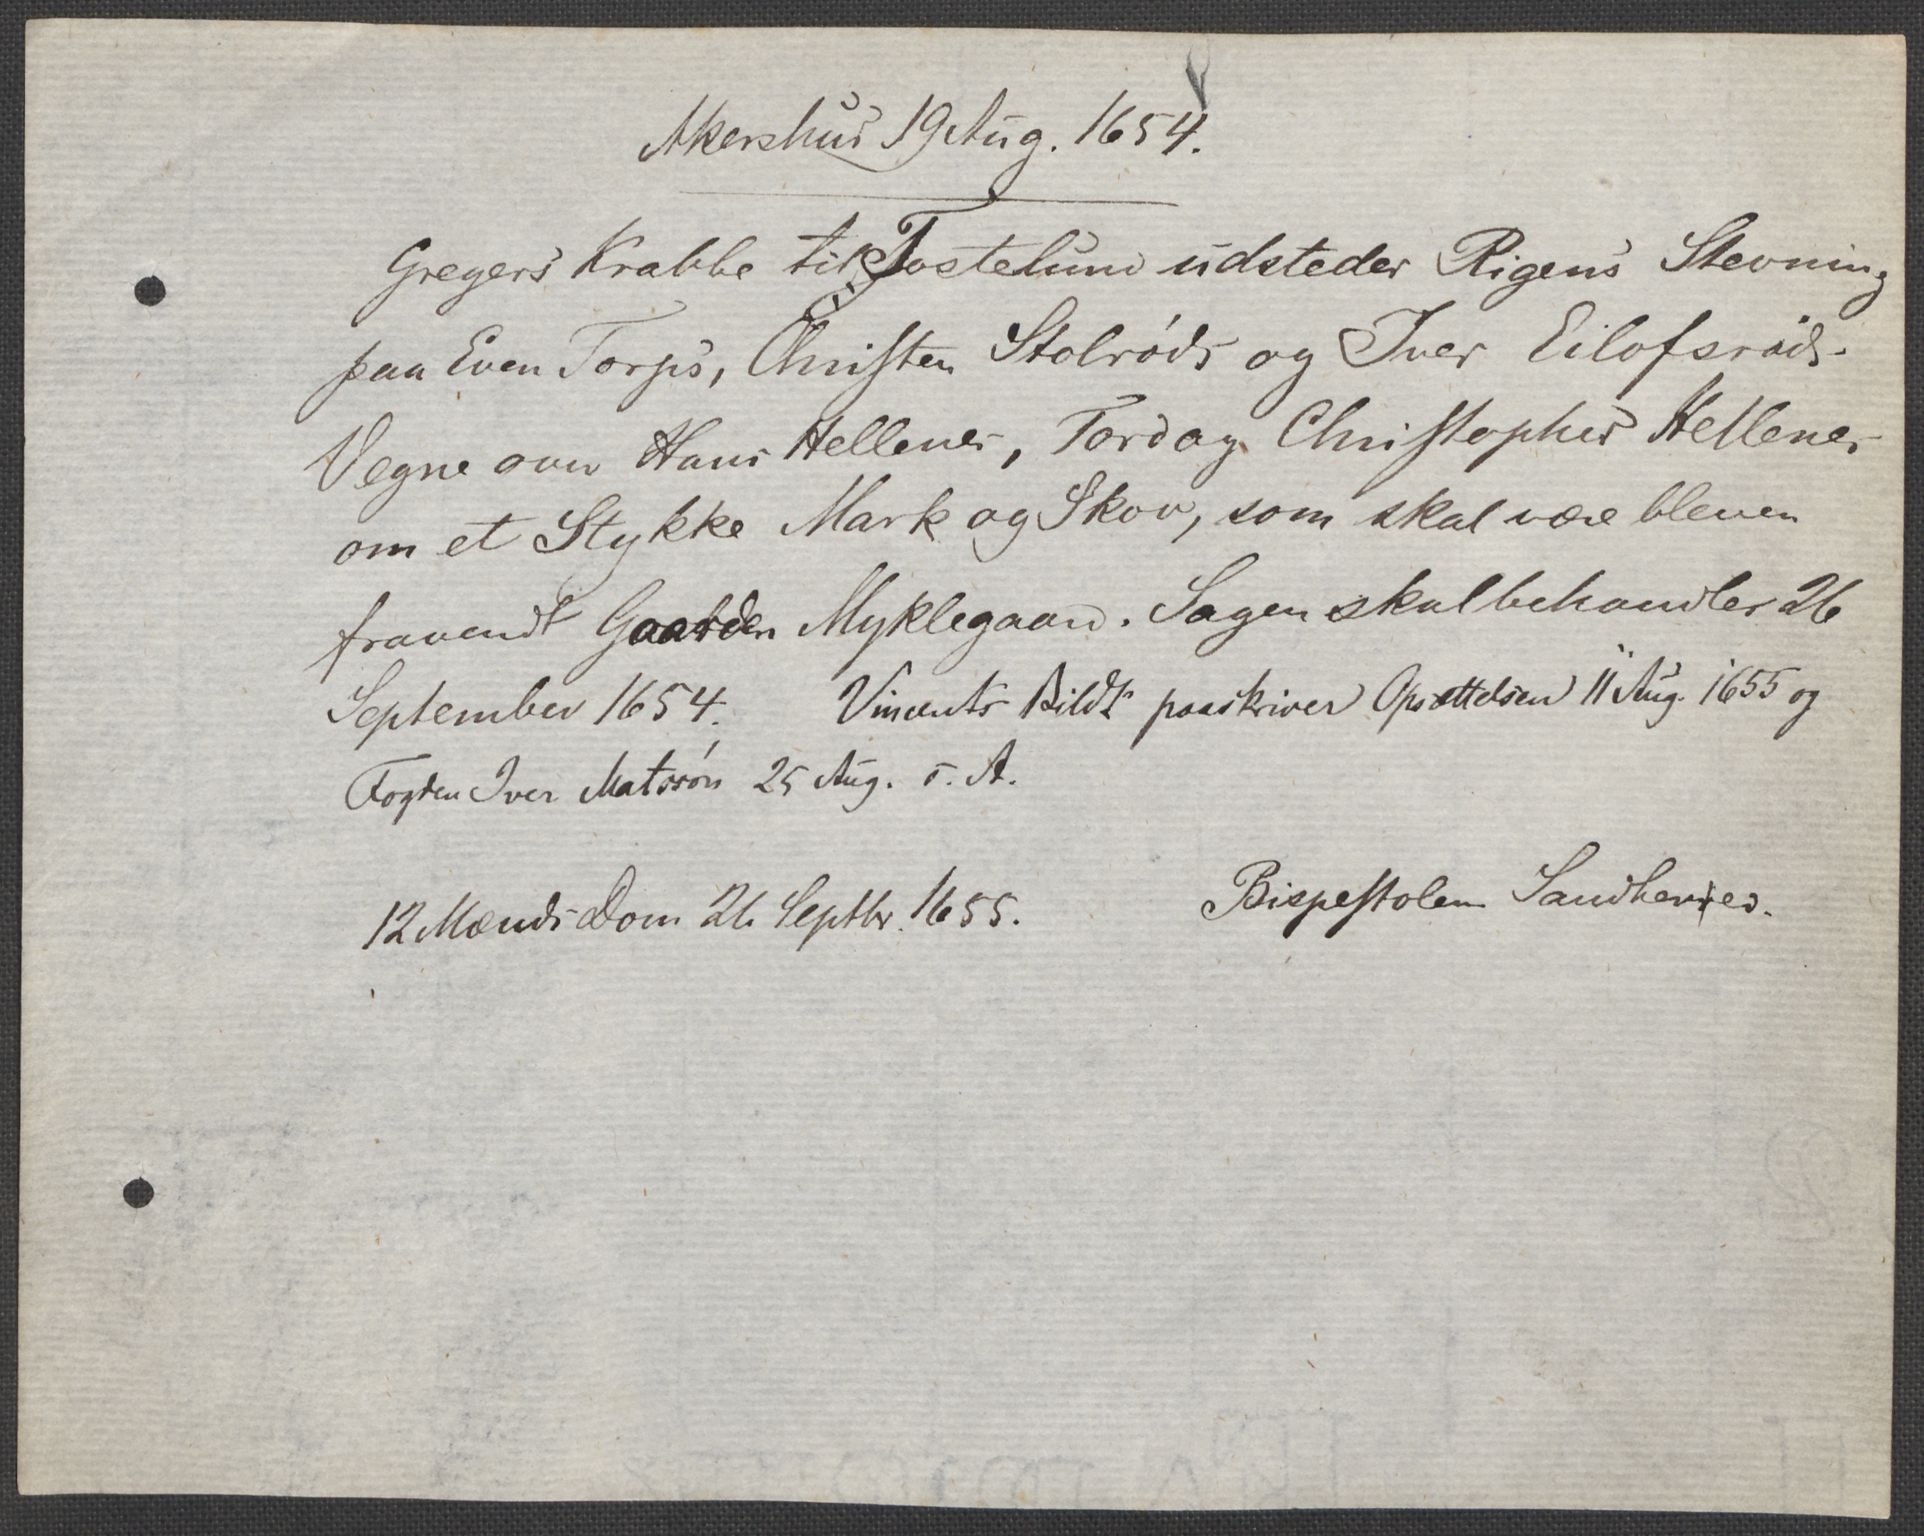 Akershus 19 Aug. 1654.
Gregers Krabbe til Tostelund udsteder Rigens Stevning
paa Even Torps, Christen Stolrøds og Iver Eilofsrøds
Vegne over Hans Hellenes, Tord og Christopher Hellenes
om et Stykke Mark og Skov, som skal være bleven
fravendt Gaarden Myklegaard. Sagen skal behandles 26
September 1654. Vincents Bildt paaskriver Opsættelsen 11 Aug. 1655 og
Fogden Iver Matssøn 25 Aug. s. A.
12 Mænds Dom 26 Septbr. 1655. Bispestolen Sandherres.